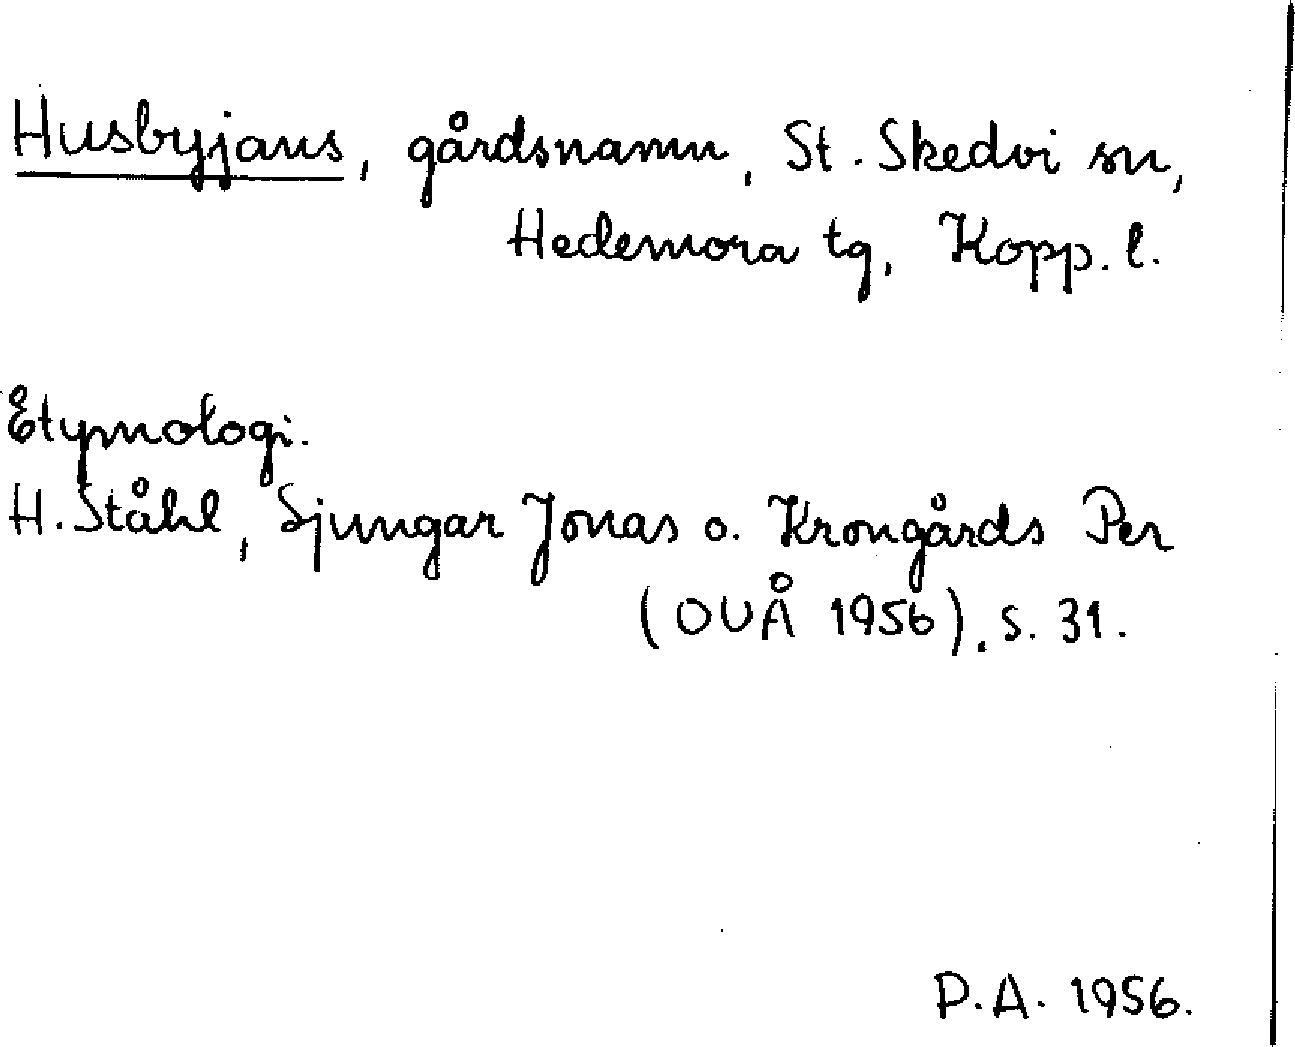 Husbyjans, gårdsnamn, St. Skedvi sn,
Hedemora tg, Kopp. l.
Etymologi.
H. Ståhl, Sjungar Jonas o. Krongårds Per
(OUÅ 1956), s. 31.
P.A. 1956.